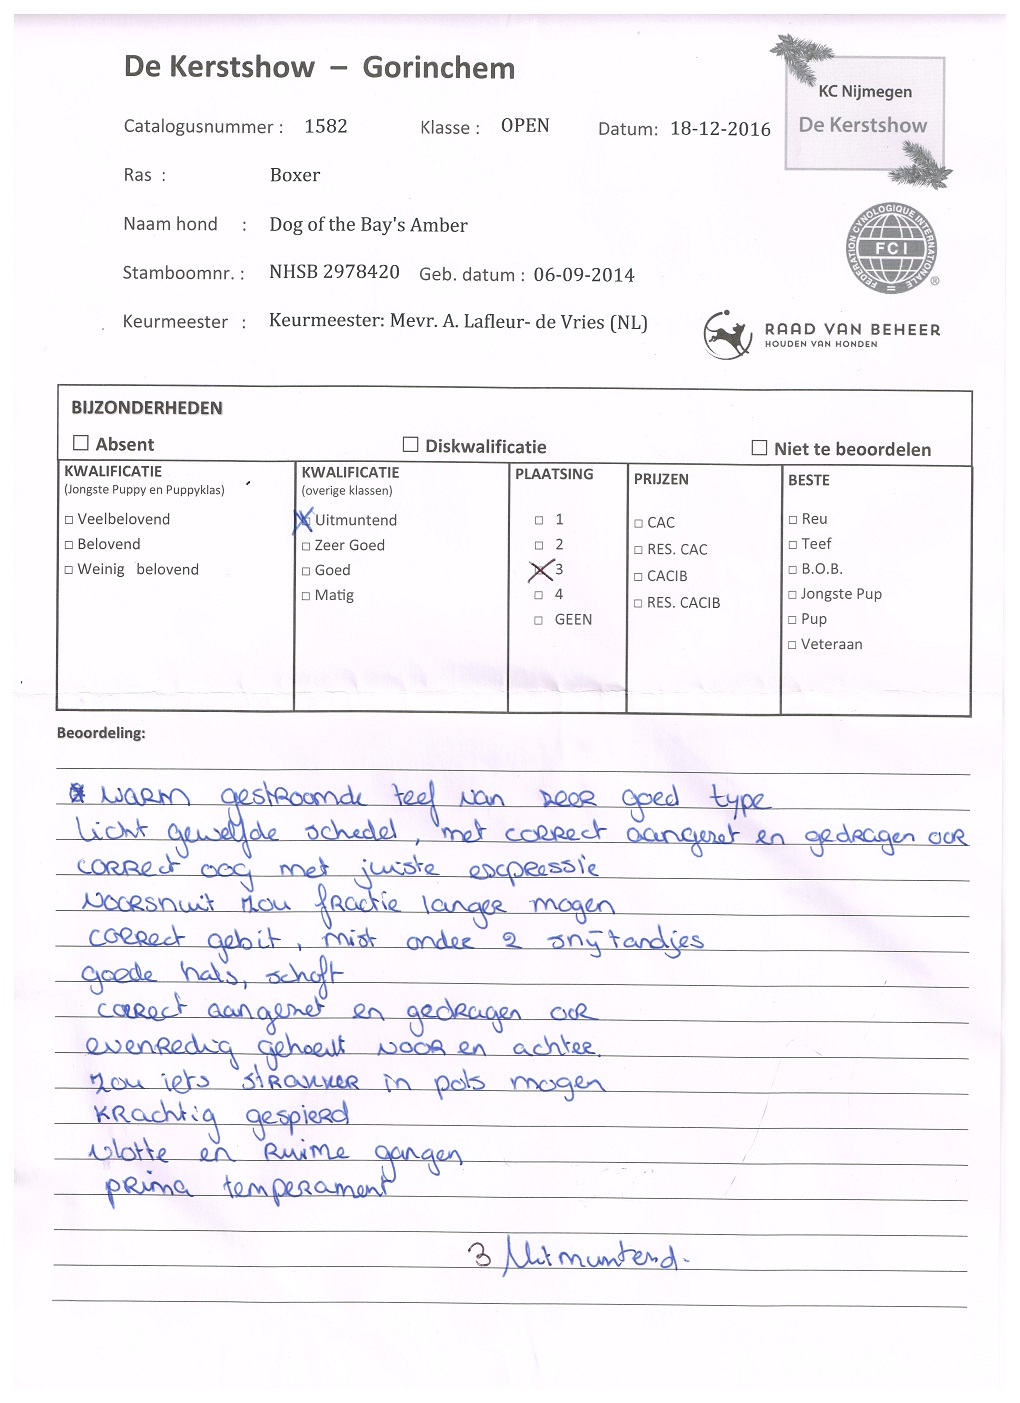 De Kerstshow – Gorinchem
KC Nijmegen
De Kerstshow
Catalogusnummer : 1582 Klasse : OPEN Datum: 18-12-2016
Ras : Boxer
Naam hond : Dog of the Bay's Amber
FEDERATION CYNOLOGIQUE INTERNATIONALE
FCI
®
Stamboomnr. : NHSB 2978420 Geb. datum : 06-09-2014
Keurmeester : Keurmeester: Mevr. A. Lafleur- de Vries (NL)
RAAD VAN BEHEER
HOUDEN VAN HONDEN
BIJZONDERHEDEN
☐ Absent ☐ Diskwalificatie ☐ Niet te beoordelen
KWALIFICATIE
(Jongste Puppy en Puppyklas)
□ Veelbelovend
□ Belovend
□ Weinig belovend
KWALIFICATIE
(overige klassen)
☒ Uitmuntend
□ Zeer Goed
□ Goed
□ Matig
PLAATSING
□ 1
□ 2
☒ 3
□ 4
□ GEEN
PRIJZEN
□ CAC
□ RES. CAC
□ CACIB
□ RES. CACIB
BESTE
□ Reu
□ Teef
□ B.O.B.
□ Jongste Pup
□ Pup
□ Veteraan
Beoordeling:
warm gestroomde teef van zeer goed type
licht gewelfde schedel, met correct aangezet en gedragen oor
correct oog met juiste expressie
voorsnuit zou fractie langer mogen
correct gebit, mist onder 2 snijtandjes
goede hals, schoft
correct aangezet en gedragen oor
evenredig gehoekt voor en achter.
zou iets strakker in pols mogen
krachtig gespierd
vlotte en ruime gangen
prima temperament
3 Uitmuntend.